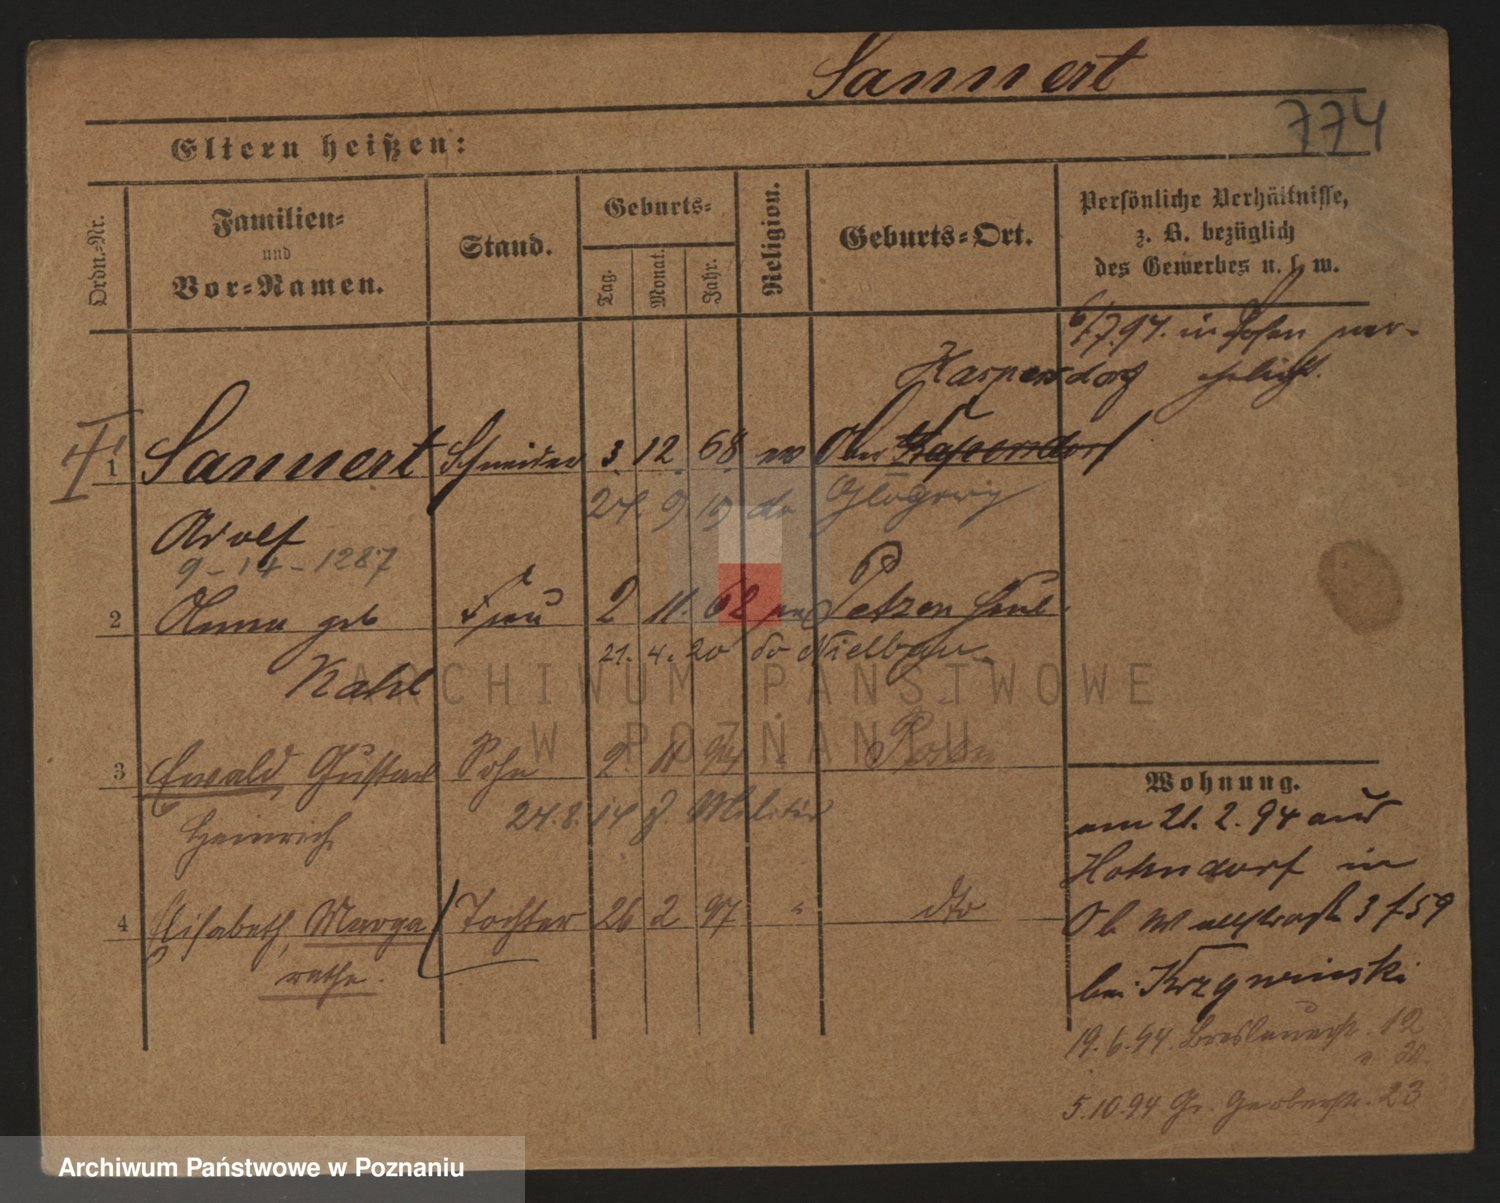 Sannert
774
Eltern heißen:
Ordn.-Nr.
Familien-
und
Vor-Namen.
Stand.
Geburts-
Tag.
Monat.
Jahr.
Religion.
Geburts-Ort.
Persönliche Verhältnisse,
z. B. bezüglich
des Gewerbes u. s. w.
6/7.94. in Posen ver-
ehelicht.
Kaspersdorf
1 Sannert Schneider 3 12 68 ev Ober Kaspersdorf
24. 9 19 do Glogowy
Adolf
9-14-1287
2 Anna geb Frau 2 11. 62 ev Petzen
21. 4. 20 do Nielbau
Kahl
3 Ewald, Gustav Sohn 2 11 94 " Posen
24.8.14 z. Militär
Heinrich
4 Elisabeth, Marga Tochter 26 2 97 " dto
rethe.
Wohnung.
am 21. 2. 94 aus
Hohndorf in
Ob Wallstraße 3 f. 59
bei Krzywinski
19.6.94. Breslauerstr. 12
" 20.
5.10.94 Gr. Gerberstr. 23
ARCHIWUM PAŃSTWOWE
W POZNANIU
Archiwum Państwowe w Poznaniu